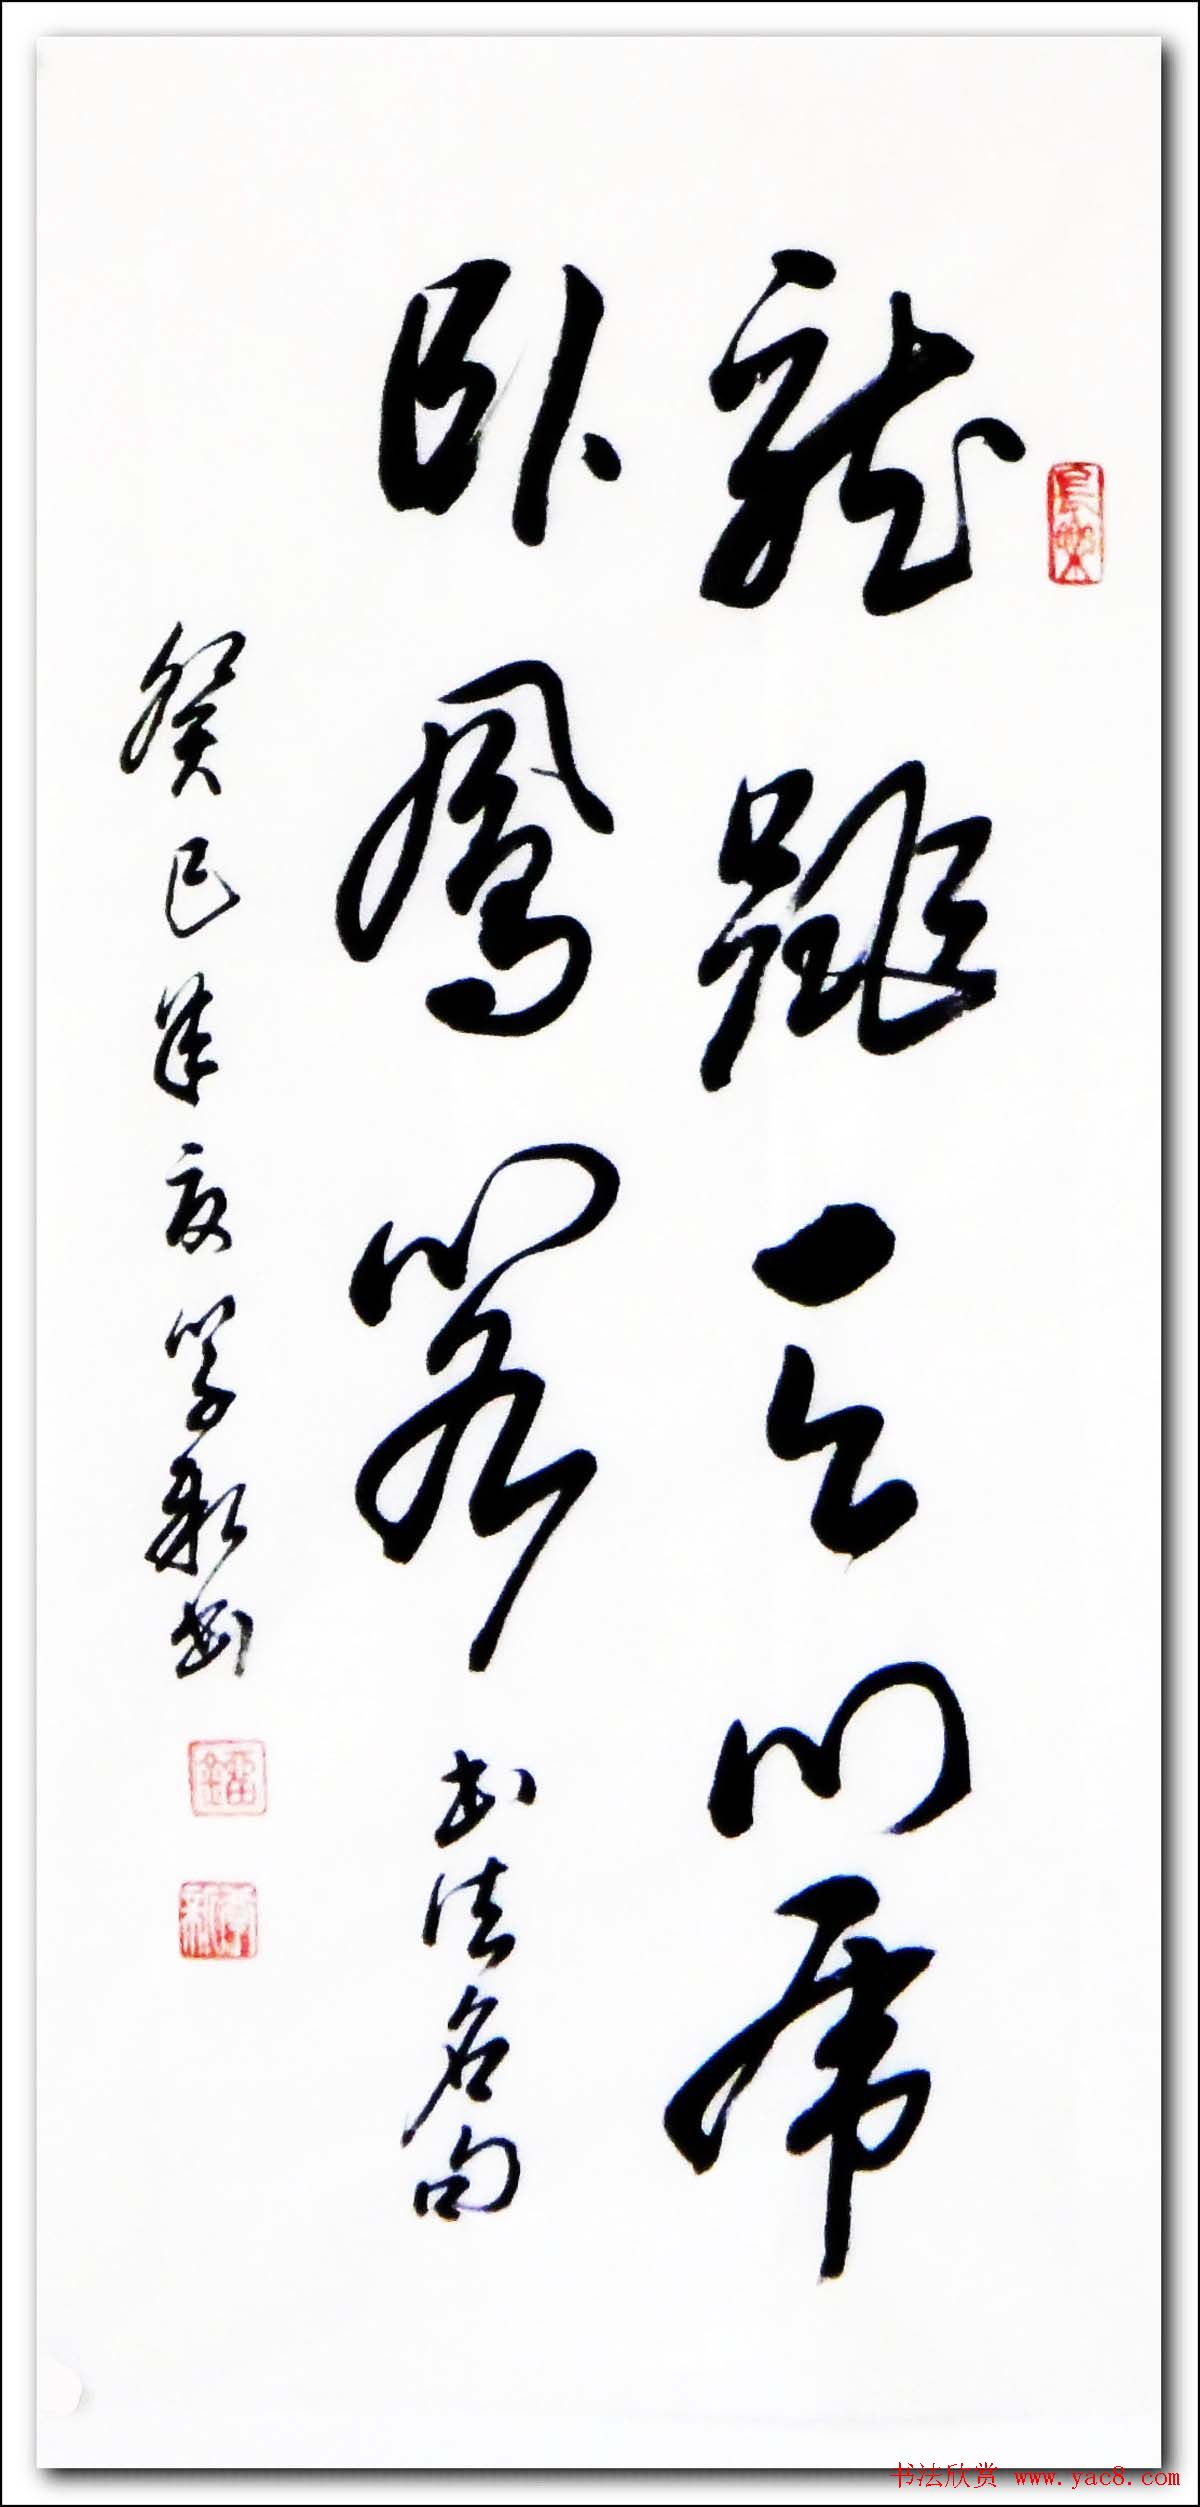 龍跳天門虎
卧鳳閣 書法名句
癸巳年夏學新書
书法欣赏 www.yac8.com